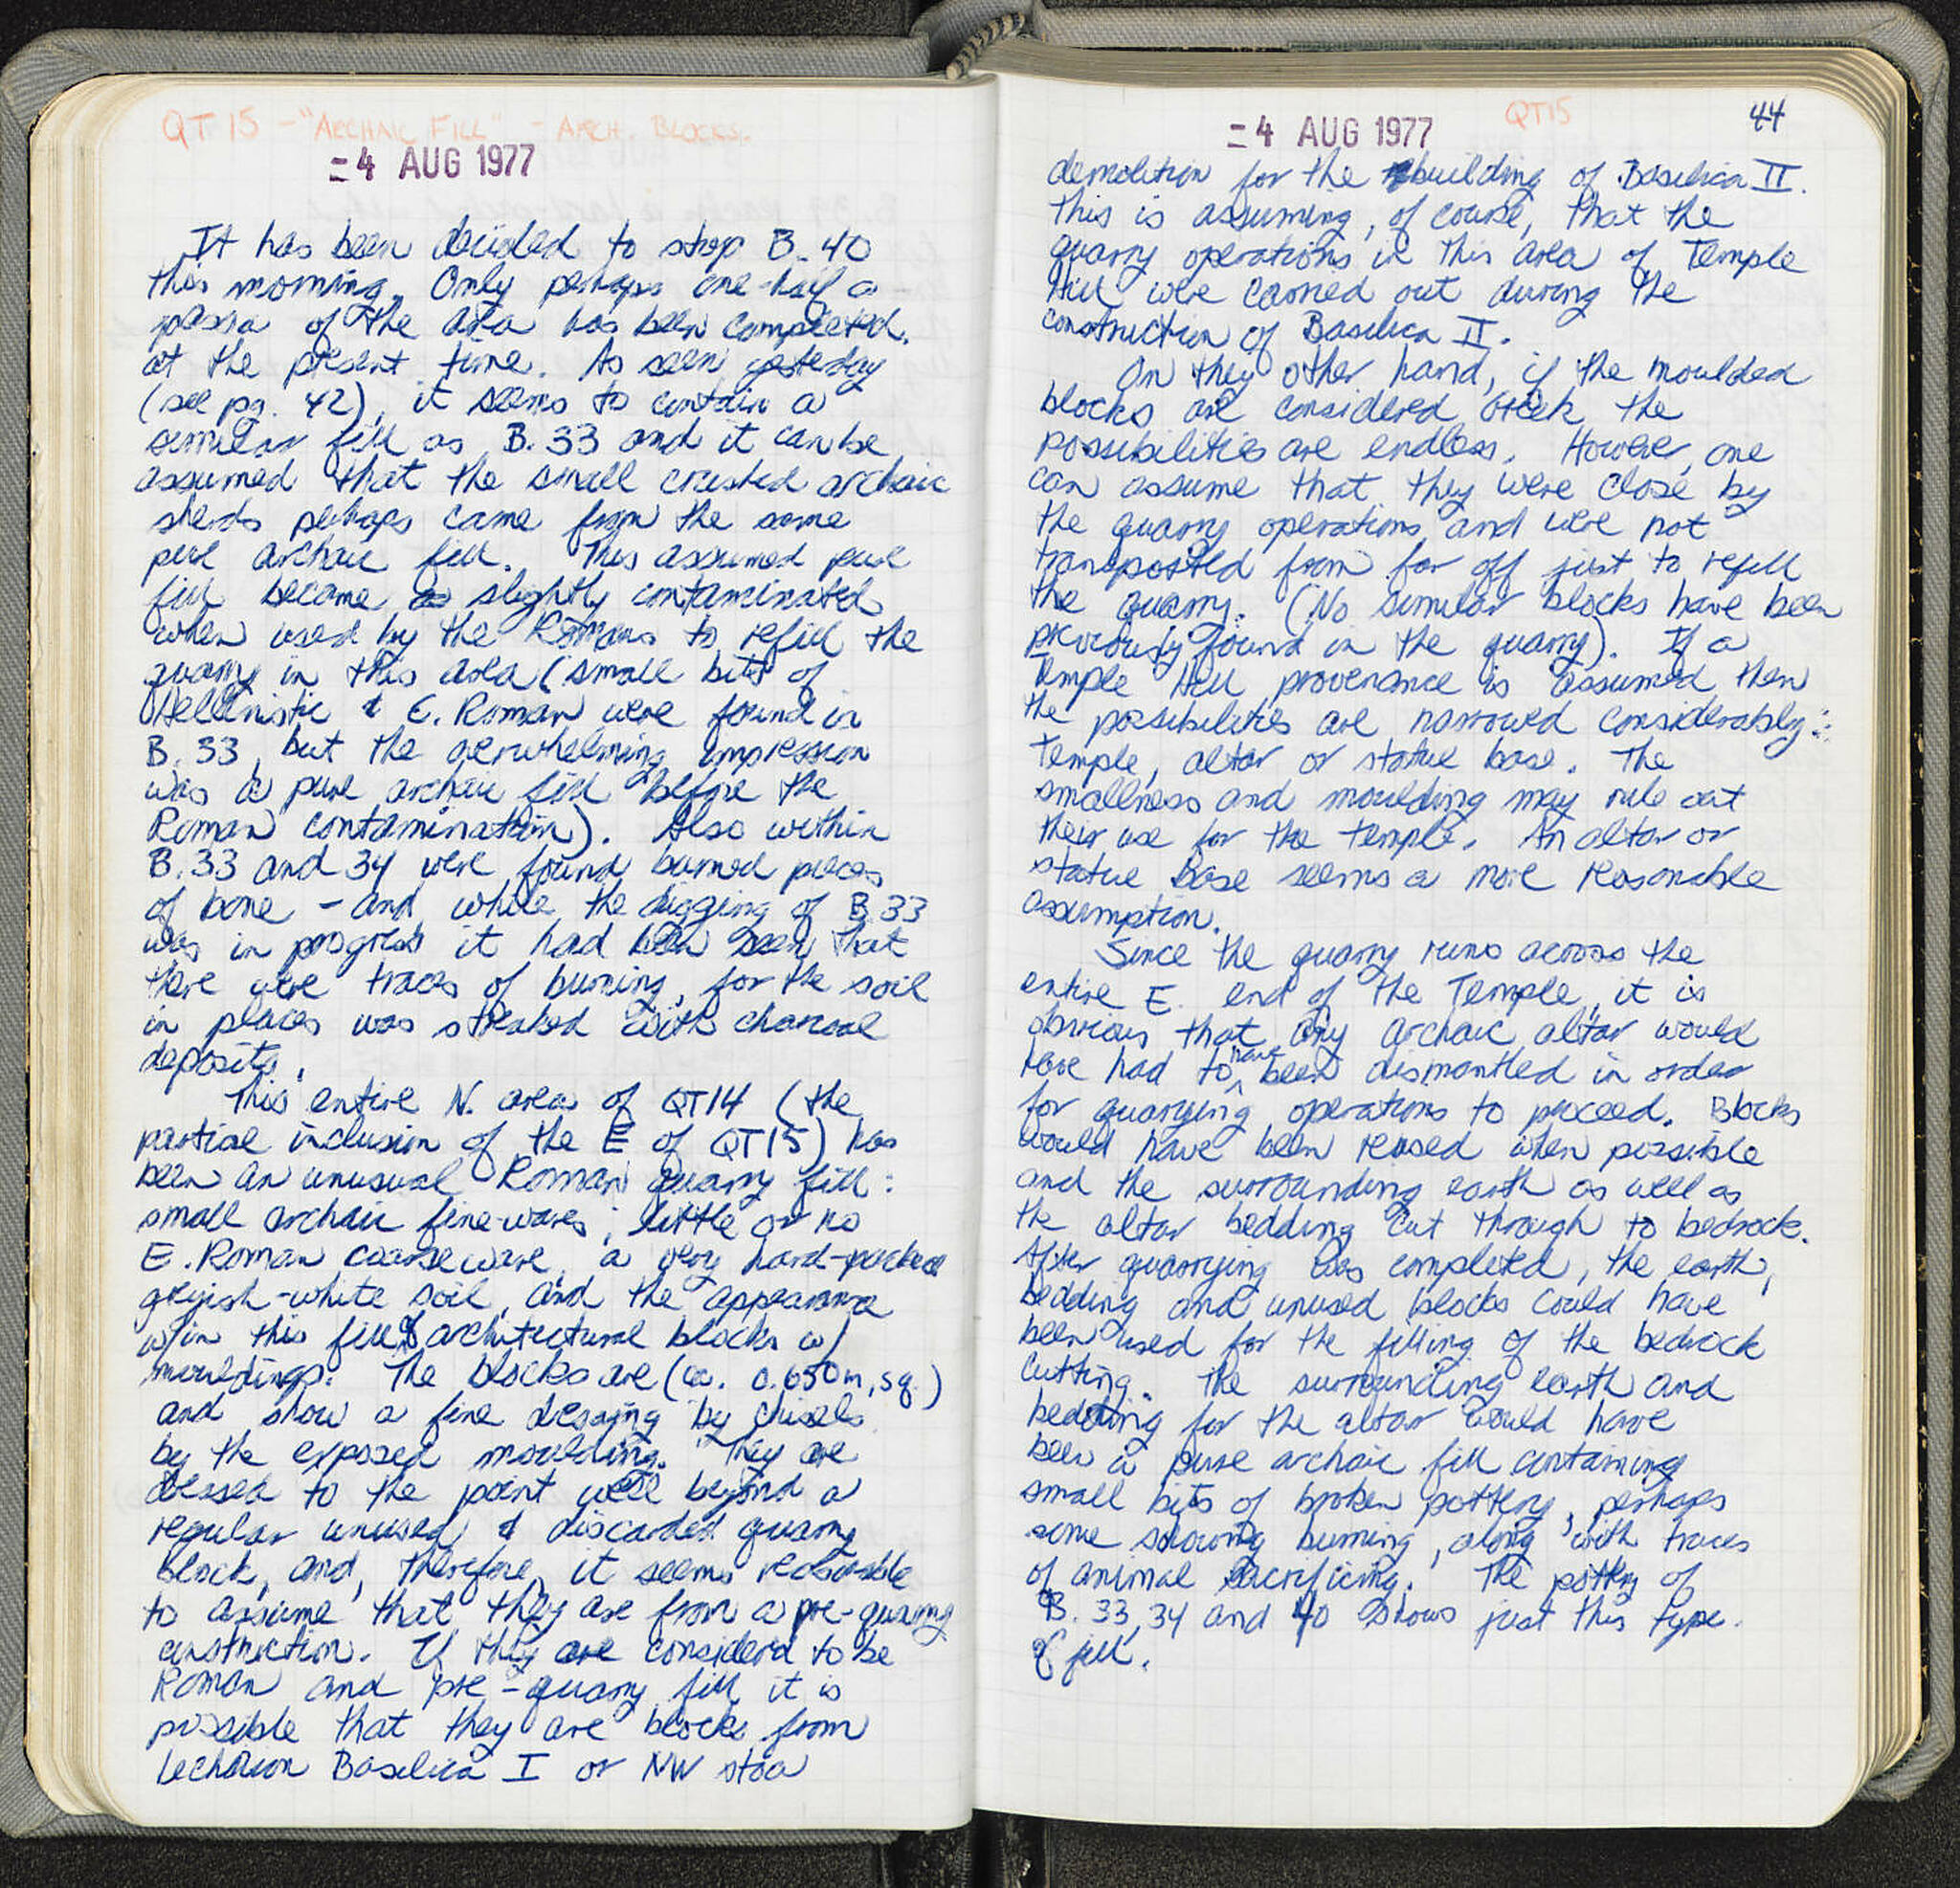 QT 15 - "ARCHAIC FILL" - ARCH. BLOCKS.
= 4 AUG 1977
It has been decided to stop B. 40
this morning. Only perhaps one-half a
passa of the area has been completed.
at the present time. As seen yesterday
(see pg. 42), it seems to contain a
similar fill as B. 33 and it can be
assumed that the small crusted archaic
sherds perhaps came from the same
pure archaic fill. This assumed pure
fill became slightly contaminated
when used by the Romans to refill the
quarry in this area (small bits of
Hellenistic & E. Roman were found in
B. 33, but the overwhelming impression
was a pure archaic fill before the
Roman contamination). Also within
B. 33 and 34 were found burned pieces
of bone - and while the digging of B. 33
was in progress it had been seen that
there were traces of burning, for the soil
in places was streaked with charcoal
deposits.
This entire N. area of QT14 (the
partial inclusion of the E of QT15) has
been an unusual Roman quarry fill:
small archaic fine-wares; little or no
E. Roman coarse ware, a very hard-packed
greyish-white soil, and the appearance
w/in this fill of architectural blocks w/
mouldings. The blocks are (ca. 0.650m, sq.)
and show a fine dressing by chisels
by the exposed moulding. They are
dressed to the point well beyond a
regular unused & discarded quarry
block, and, therefore, it seems reasonable
to assume that they are from a pre-quarry
construction. If they are considerd to be
Roman and pre-quarry fill, it is
possible that they are blocks from
Lechaion Basilica I or NW stoa
QT15
44
= 4 AUG 1977
demolition for the building of Basilica II.
This is assuming, of course, that the
quarry operations in this area of Temple
Hill were carried out during the
construction of Basilica II.
On they other hand, if the moulded
blocks are considered Greek the
possibilities are endless. However, one
can assume that they were close by
the quarry operations and were not
transported from far off just to refill
the quarry. (No similar blocks have been
previously found in the quarry). If a
Temple Hill provenance is assumed then
the possibilities are narrowed considerably:
temple, altar or statue base. The
smallness and moulding may rule out
their use for the temple. An altar or
statue base seems a more reasonable
assumption.
Since the quarry runs across the
entire E. end of the Temple, it is
obvious that any archaic altar would
have had to have been dismantled in order
for quarrying operations to proceed. Blocks
would have been reused when possible
and the surrounding earth as well as
the altar bedding cut through to bedrock.
After quarrying was completed, the earth,
bedding and unused blocks could have
been used for the filling of the bedrock
cutting. The surrounding earth and
bedding for the altar would have
been a pure archaic fill containing
small bits of broken pottery, perhaps
some showing burning, along with traces
of animal sacrificing. The pottery of
B. 33, 34 and 40 shows just this type.
of fill.